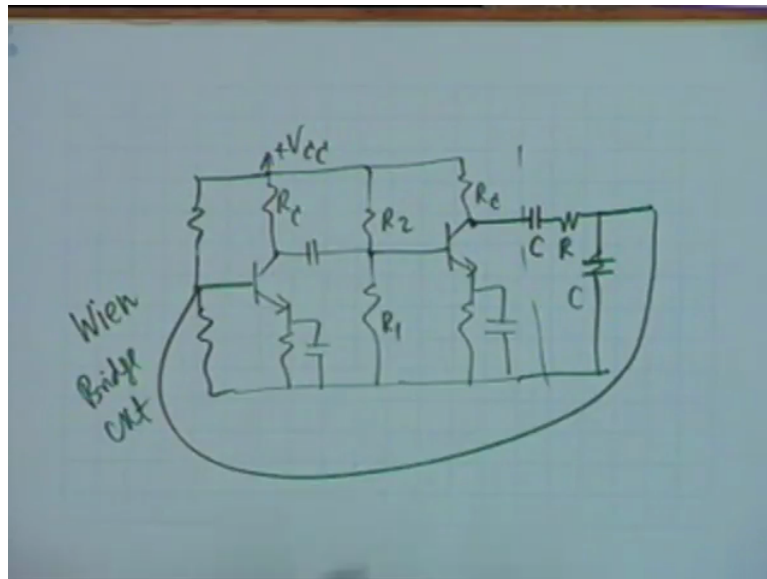 +Vcc
Rc
R2
Rc
C R
C
R1
Wien
Bridge
ckt